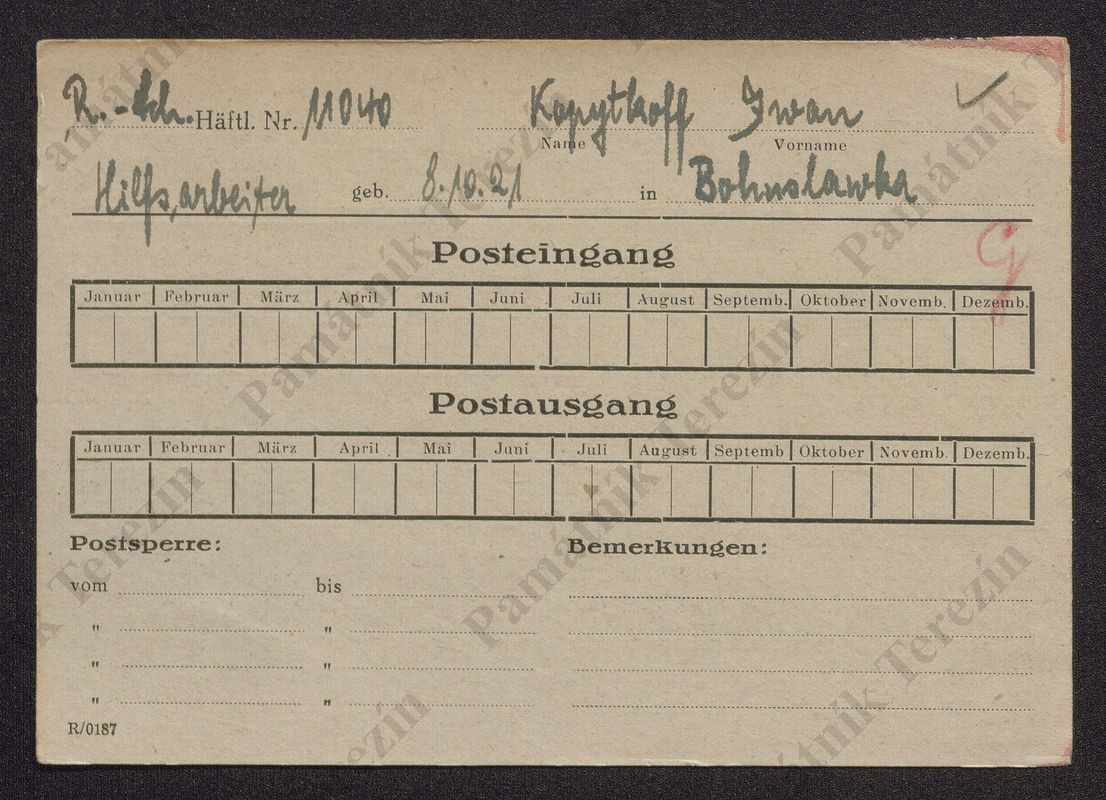 R.-Sch. Häftl. Nr. 11040 Kopytkoff Iwan
Name Vorname
Hilfsarbeiter geb. 8.10.21 in Bohuslawka
Posteingang
Januar Februar März April Mai Juni Juli August Septemb. Oktober Novemb. Dezemb.
Postausgang
Januar Februar März April Mai Juni Juli August Septemb Oktober Novemb. Dezemb.
Postsperre: Bemerkungen:
vom bis
" "
" "
" "
R/0187
Památník Terezín